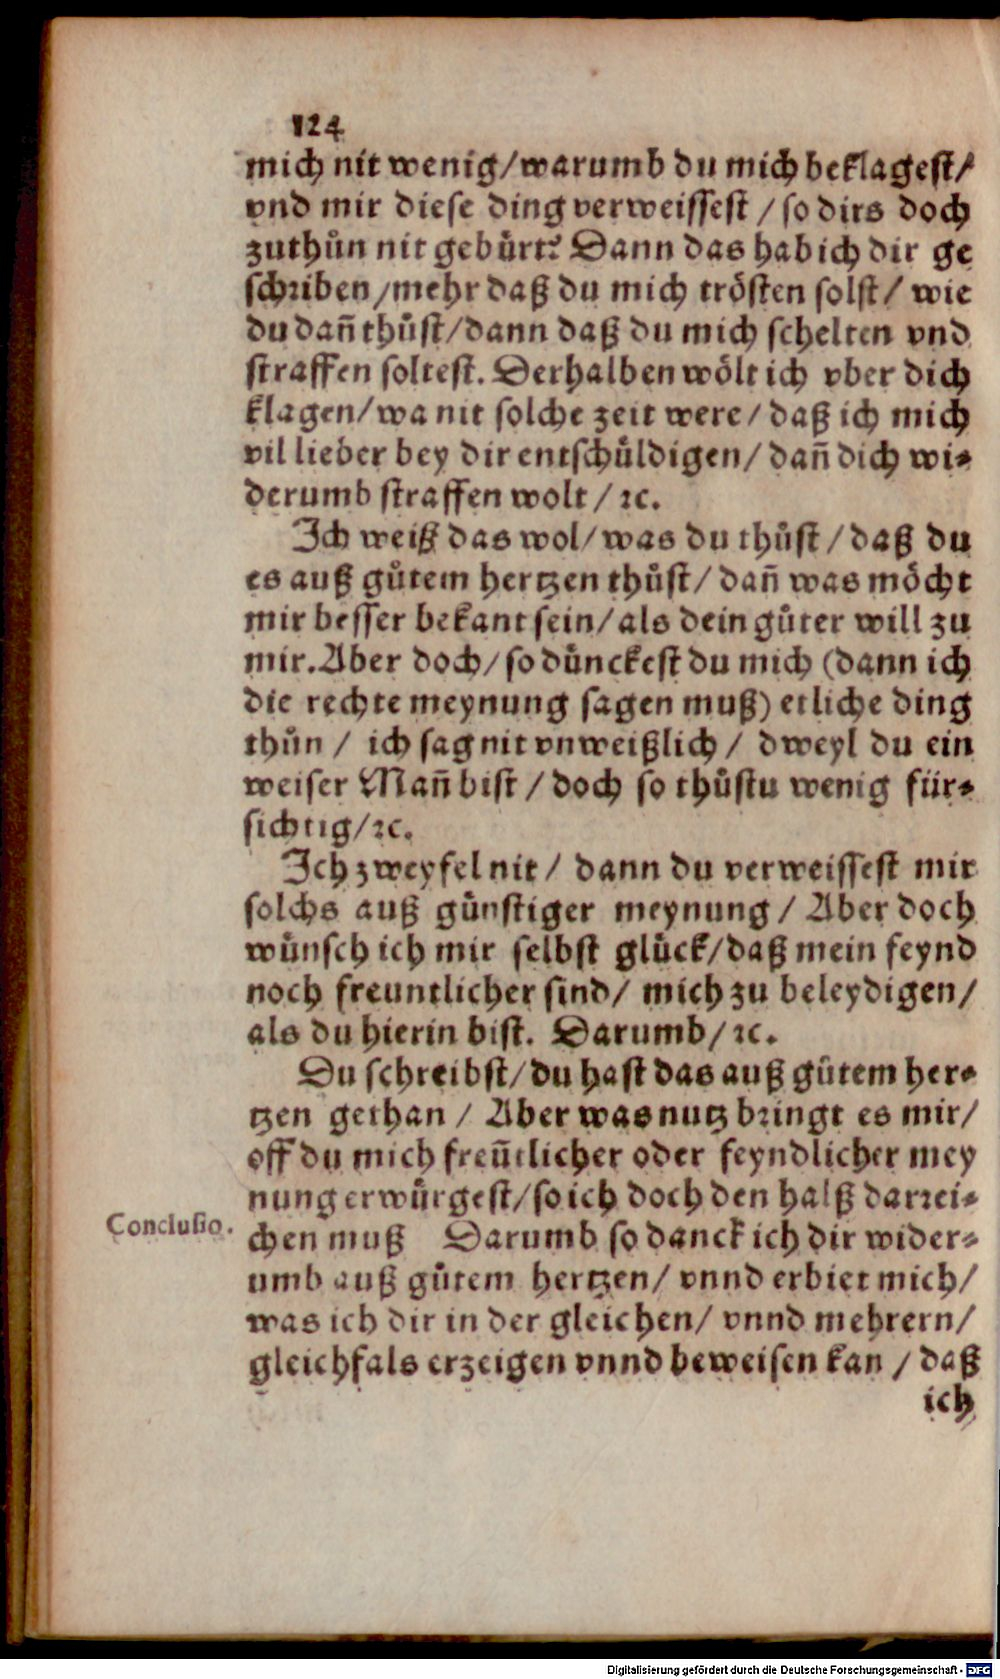 124
mich nit wenig/warumb du mich beklagest/
vnd mir diese ding verweissest / so dirs doch
zuthůn nit gebürt? Dann das hab ich dir ge
schriben/mehr daß du mich trösten solst/ wie
du dañ thůst/dann daß du mich schelten vnd
straffen soltest. Derhalben wölt ich vber dich
klagen/wa nit solche zeit were/ daß ich mich
vil lieber bey dir entschüldigen/ dañ dich wi⸗
derumb straffen wolt / ꝛc.
Ich weiß das wol/was du thůst/daß du
es auß gůtem hertzen thůst/ dañ was möcht
mir besser bekant sein/als dein gůter will zu
mir. Aber doch/so dünckest du mich (dann ich
die rechte meynung sagen muß) etliche ding
thůn / ich sag nit vnweißlich/ dweyl du ein
weiser Mañ bist / doch so thůstu wenig für⸗
sichtig/ꝛc.
Ich zweyfel nit/ dann du verweissest mir
solchs auß günstiger meynung/ Aber doch
wünsch ich mir selbst glück/daß mein feynd
noch freuntlicher sind/ mich zu beleydigen/
als du hierin bist. Darumb/ꝛc.
Du schreibst/du hast das auß gůtem her⸗
tzen gethan / Aber was nutz bringt es mir/
off du mich freũtlicher oder feyndlicher mey
nung erwürgest/so ich doch den halß darrei⸗
Conclusio. chen muß Darumb so danck ich dir wider⸗
umb auß gůtem hertzen/ vnnd erbiet mich/
was ich dir in der gleichen/ vnnd mehrern/
gleichfals erzeigen vnnd beweisen kan / daß
ich
Digitalisierung gefördert durch die Deutsche Forschungsgemeinschaft - DFG